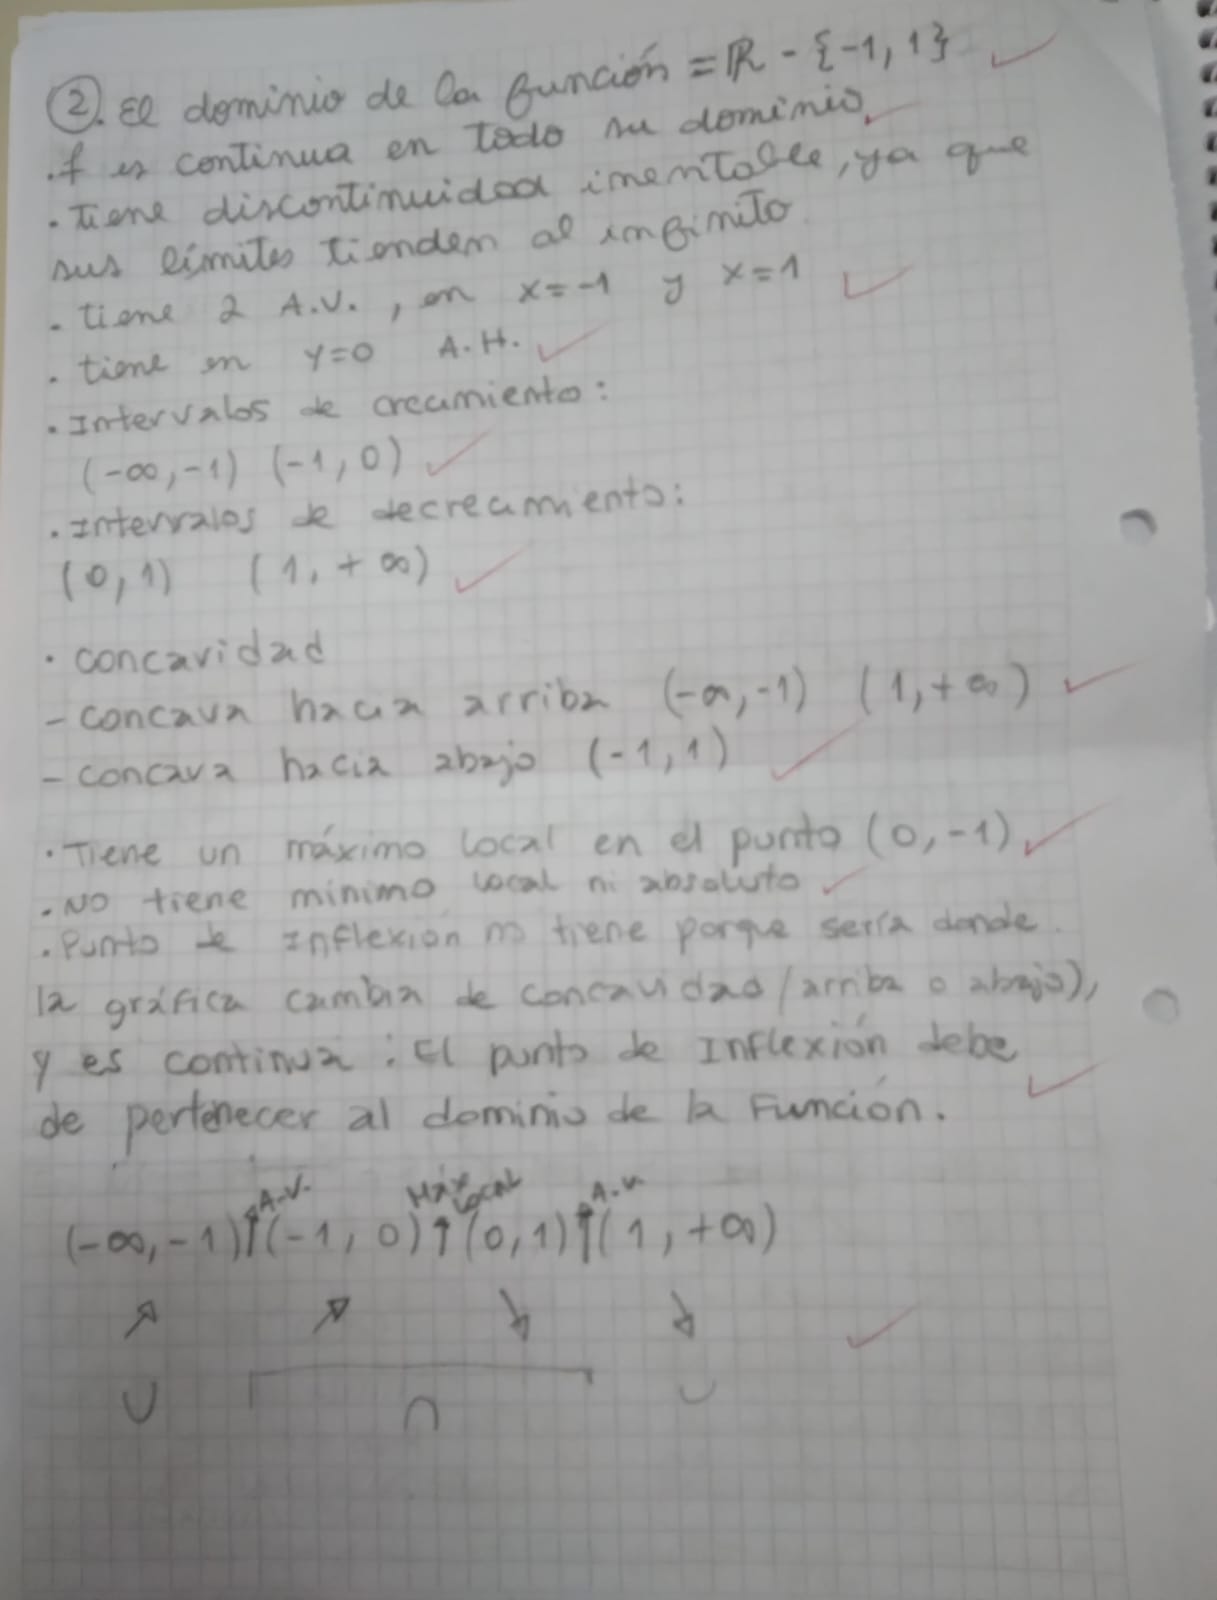 ②. El dominio de la función = ℝ - {-1, 1}
. f es continua en todo su dominio
. tiene discontinuidad inevitable, ya que
sus límites tienden al infinito
. tiene 2 A.V., en x=-1 y x=1
. tiene en y=0 A.H.
. Intervalos de crecimiento:
(-∞, -1) (-1, 0)
. Intervalos de decrecimiento:
(0, 1) (1, +∞)
. concavidad
- concava hacia arriba (-∞, -1) (1, +∞)
- concava hacia abajo (-1, 1)
. Tiene un máximo local en el punto (0, -1)
. No tiene mínimo local ni absoluto
. Punto de Inflexión no tiene porque sería donde
la gráfica cambia de concavidad (arriba o abajo),
y es continua: El punto de Inflexión debe
de pertenecer al dominio de la Función.
A.V. Máx Local A.V.
(-∞, -1)↑(-1, 0)↑(0, 1)↑(1, +∞)
↗ ↗ ↘ ↘
∪ ∩ ∪